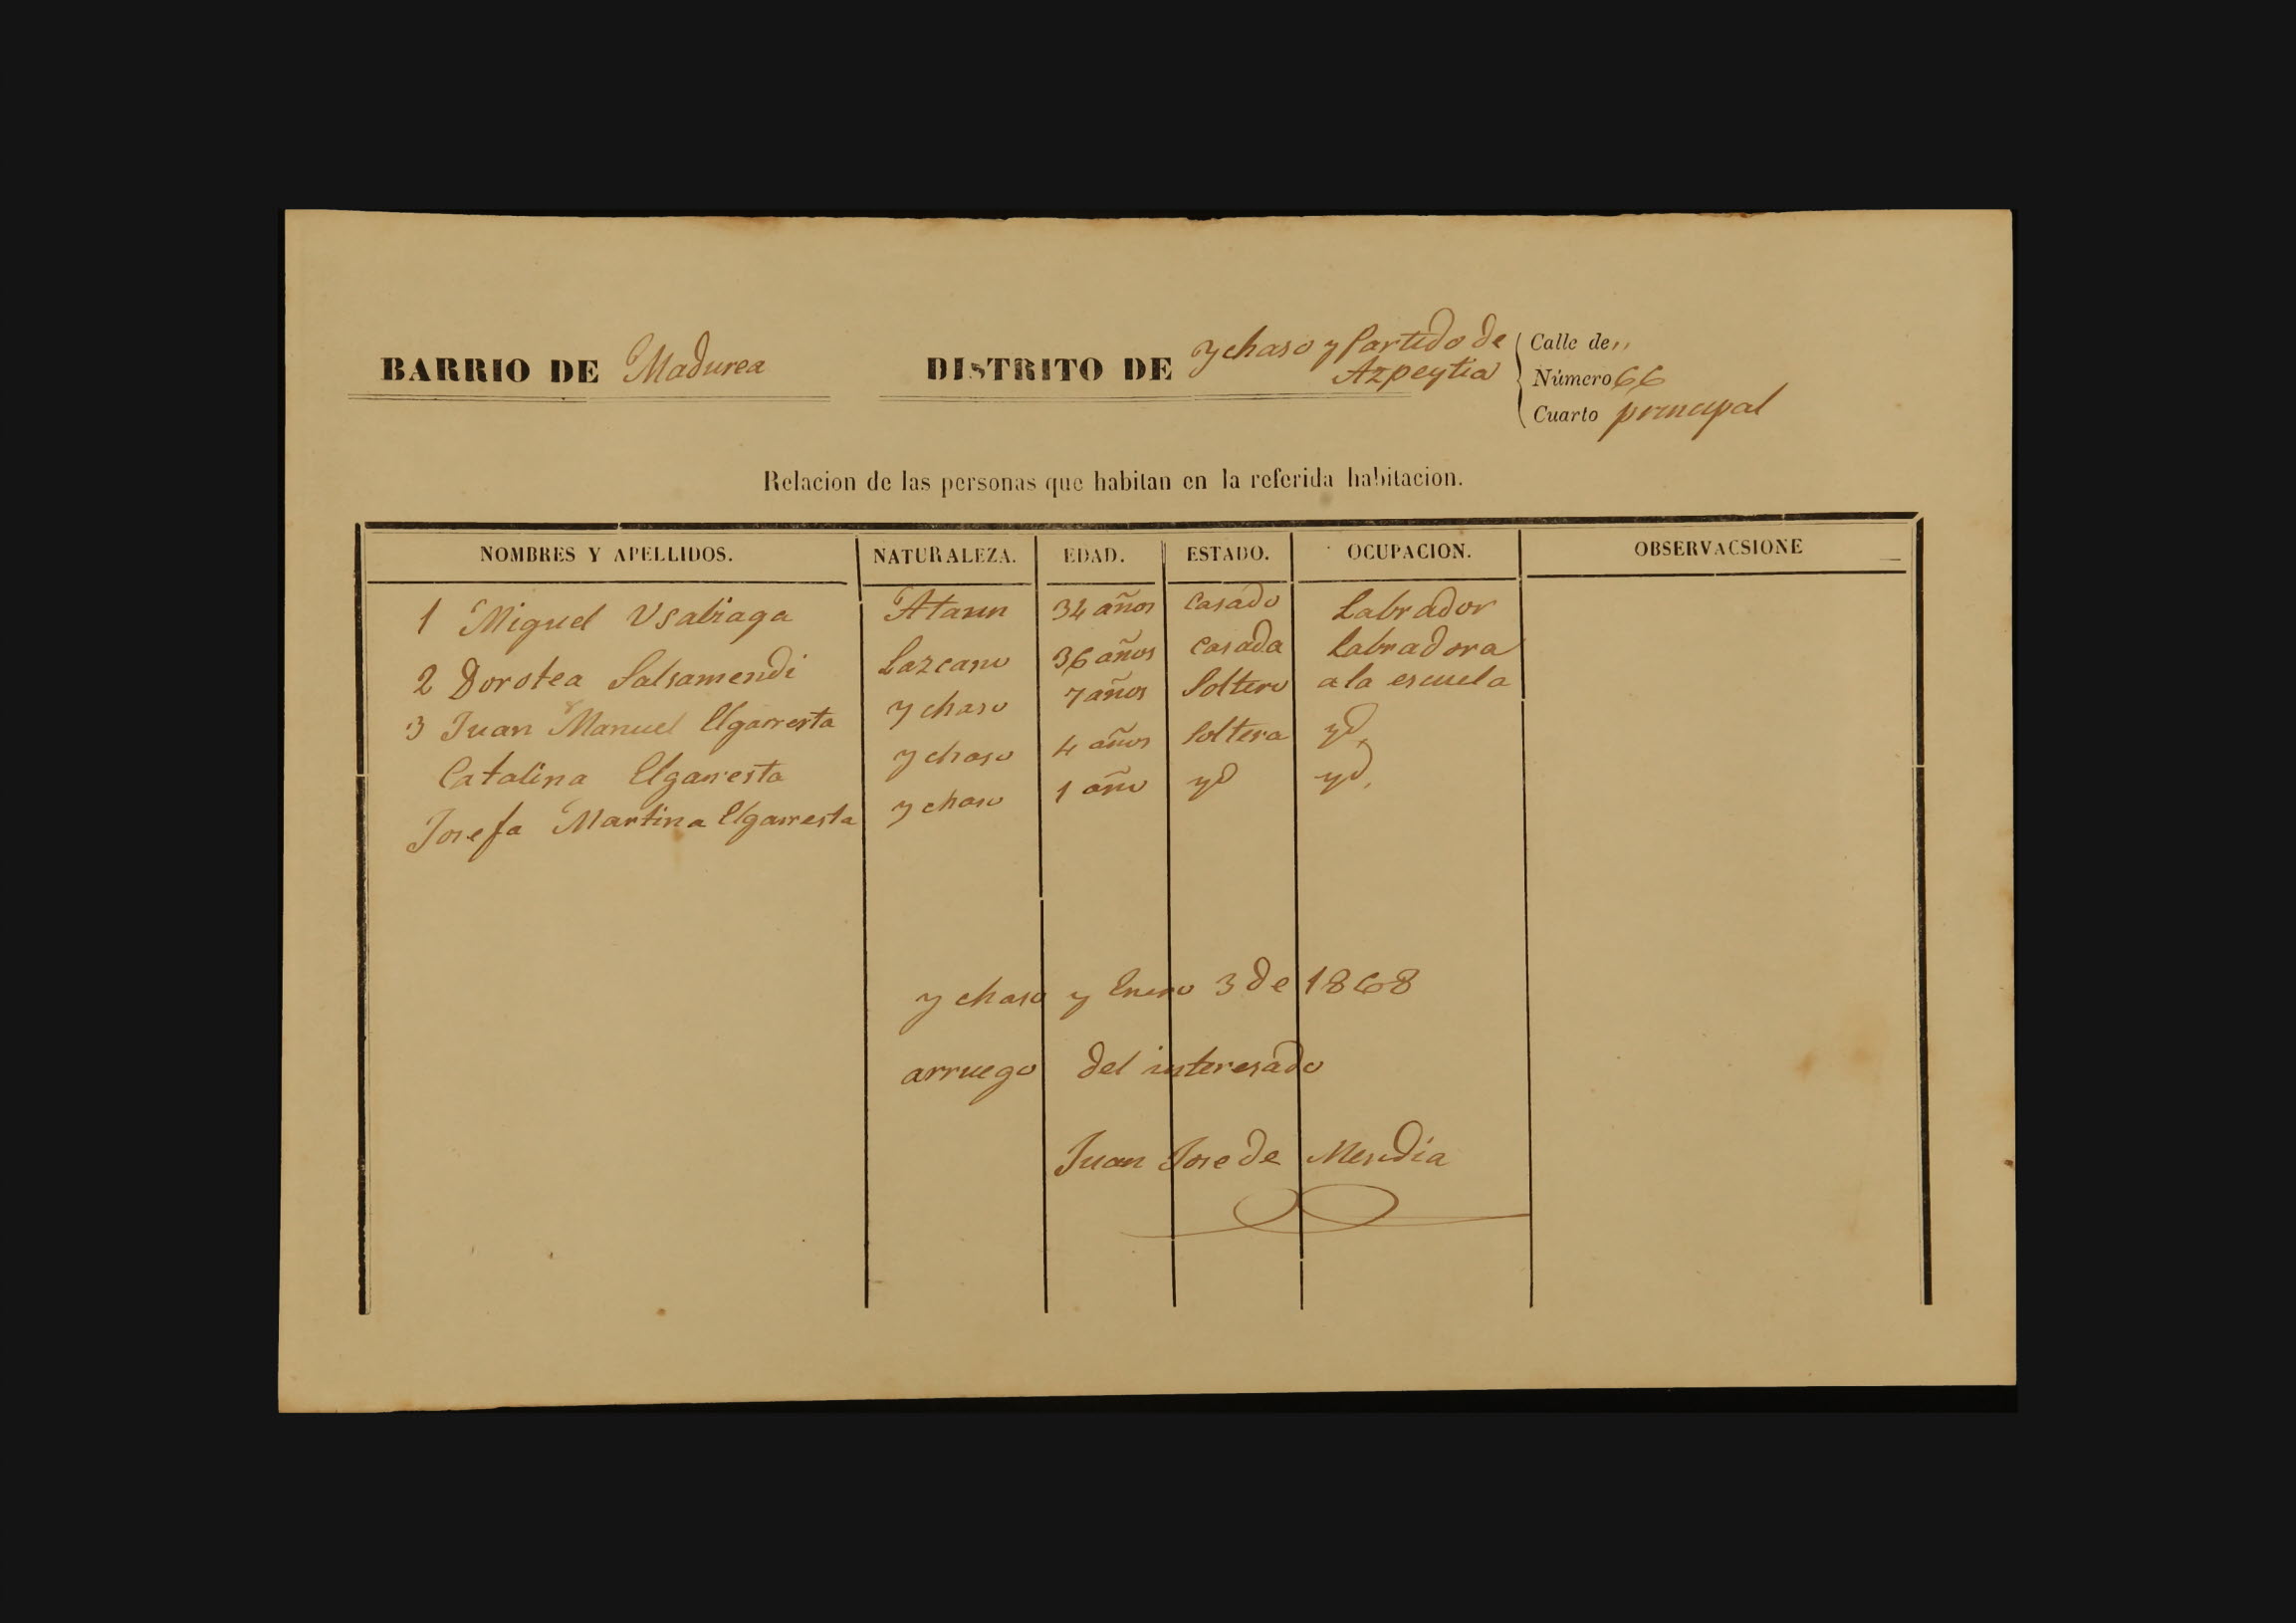 BARRIO DE Madurea DISTRITO DE ychaso y Partido de Azpeytia
Calle de ,,
Número 66
Cuarto principal
Relacion de las personas que habitan en la referida habitacion.
NOMBRES Y APELLIDOS. NATURALEZA. EDAD. ESTADO. OCUPACION. OBSERVACSIONE
1 Miguel Usabiaga Ataun 34 años casado Labrador
2 Dorotea Salsamendi Lazcano 36 años casada Labradora
3 Juan Manuel Elgarresta ychaso 7 años Soltero a la escuela
Catalina Elgarresta ychaso 4 años Soltera yd.
Josefa Martina Elgarresta ychaso 1 año yd yd.
ychaso y Enero 3 de 1868
arruego del interesado
Juan Jose de Mendia